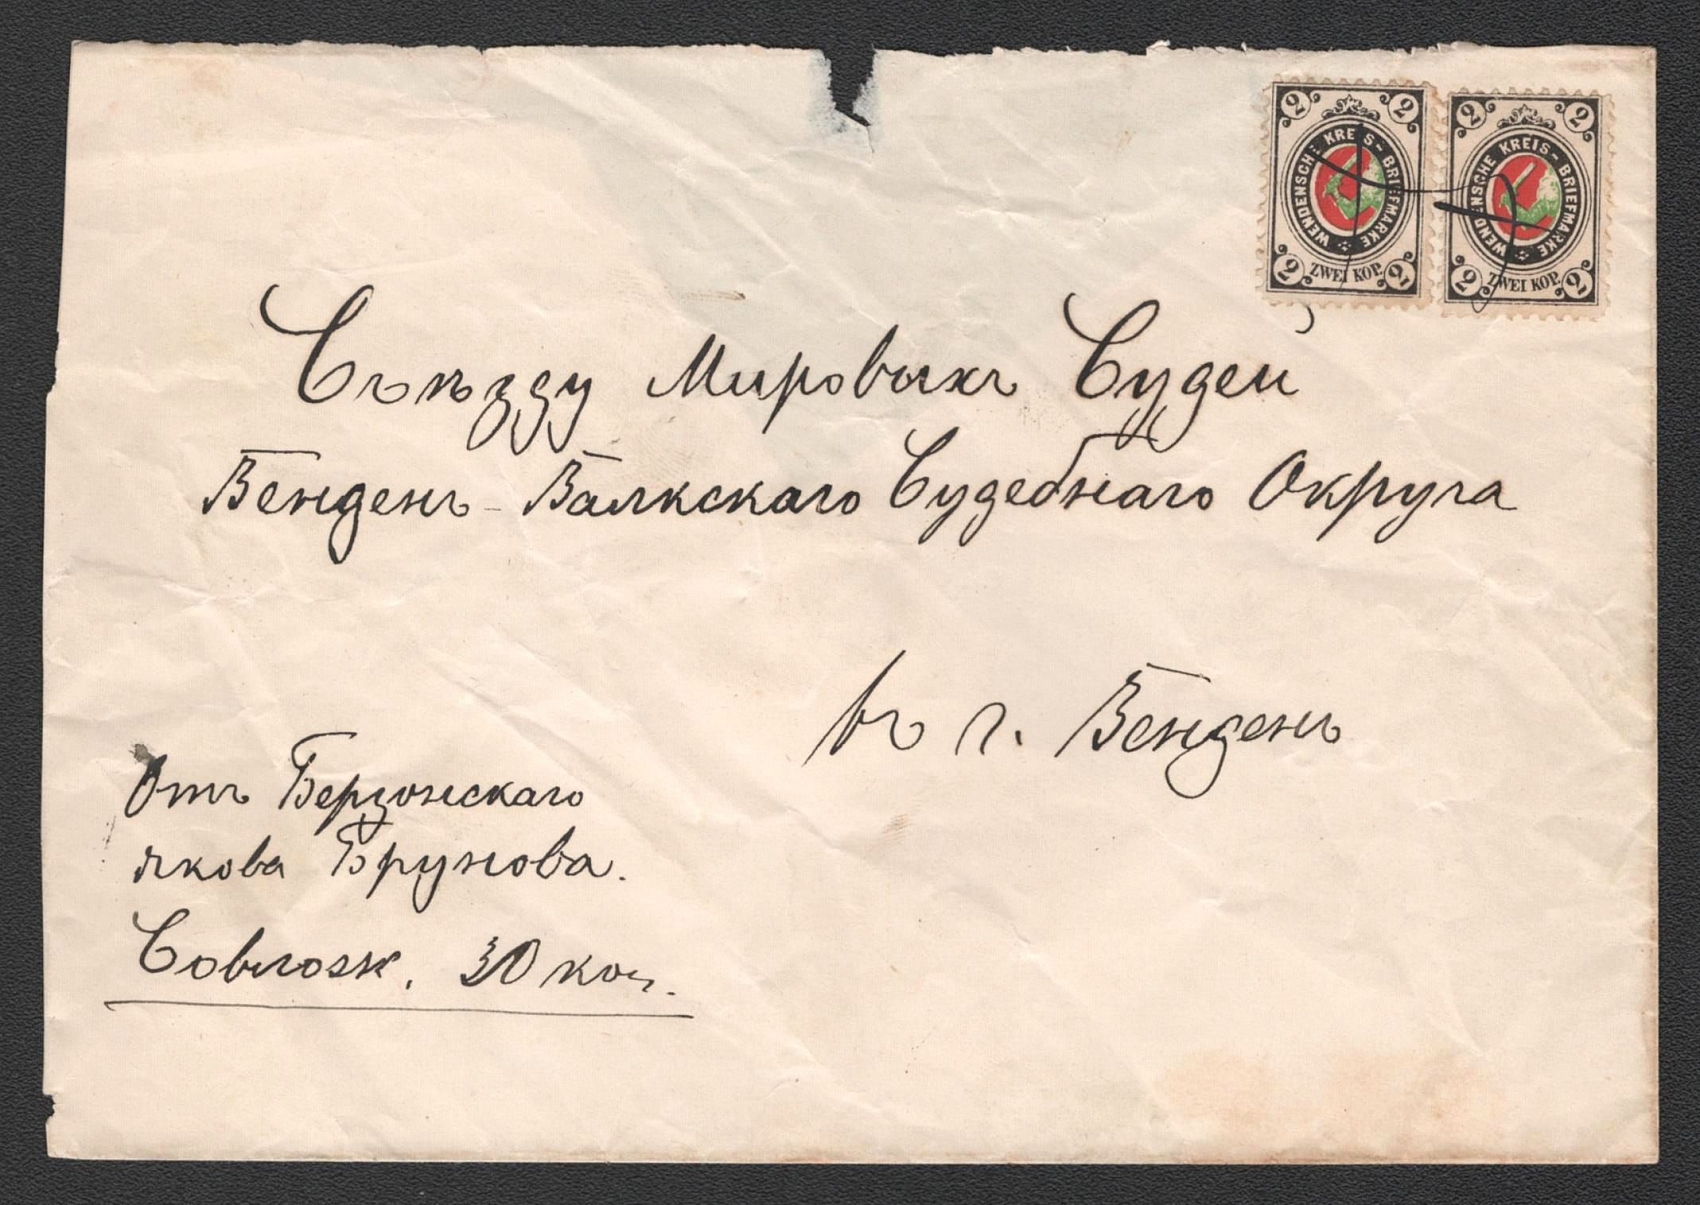 2 2 2 2
WENDENSCHE KREIS-BRIEFMARKE WENDENSCHE KREIS-BRIEFMARKE
2 ZWEI KOP. 2 2 ZWEI KOP. 2
Съѣзду Мировыхъ Судей
Венденъ-Валкскаго Судебнаго Округа
въ г. Венденъ
Отъ Берзонскаго
Якова Брунова.
Совлож. 30 коп.